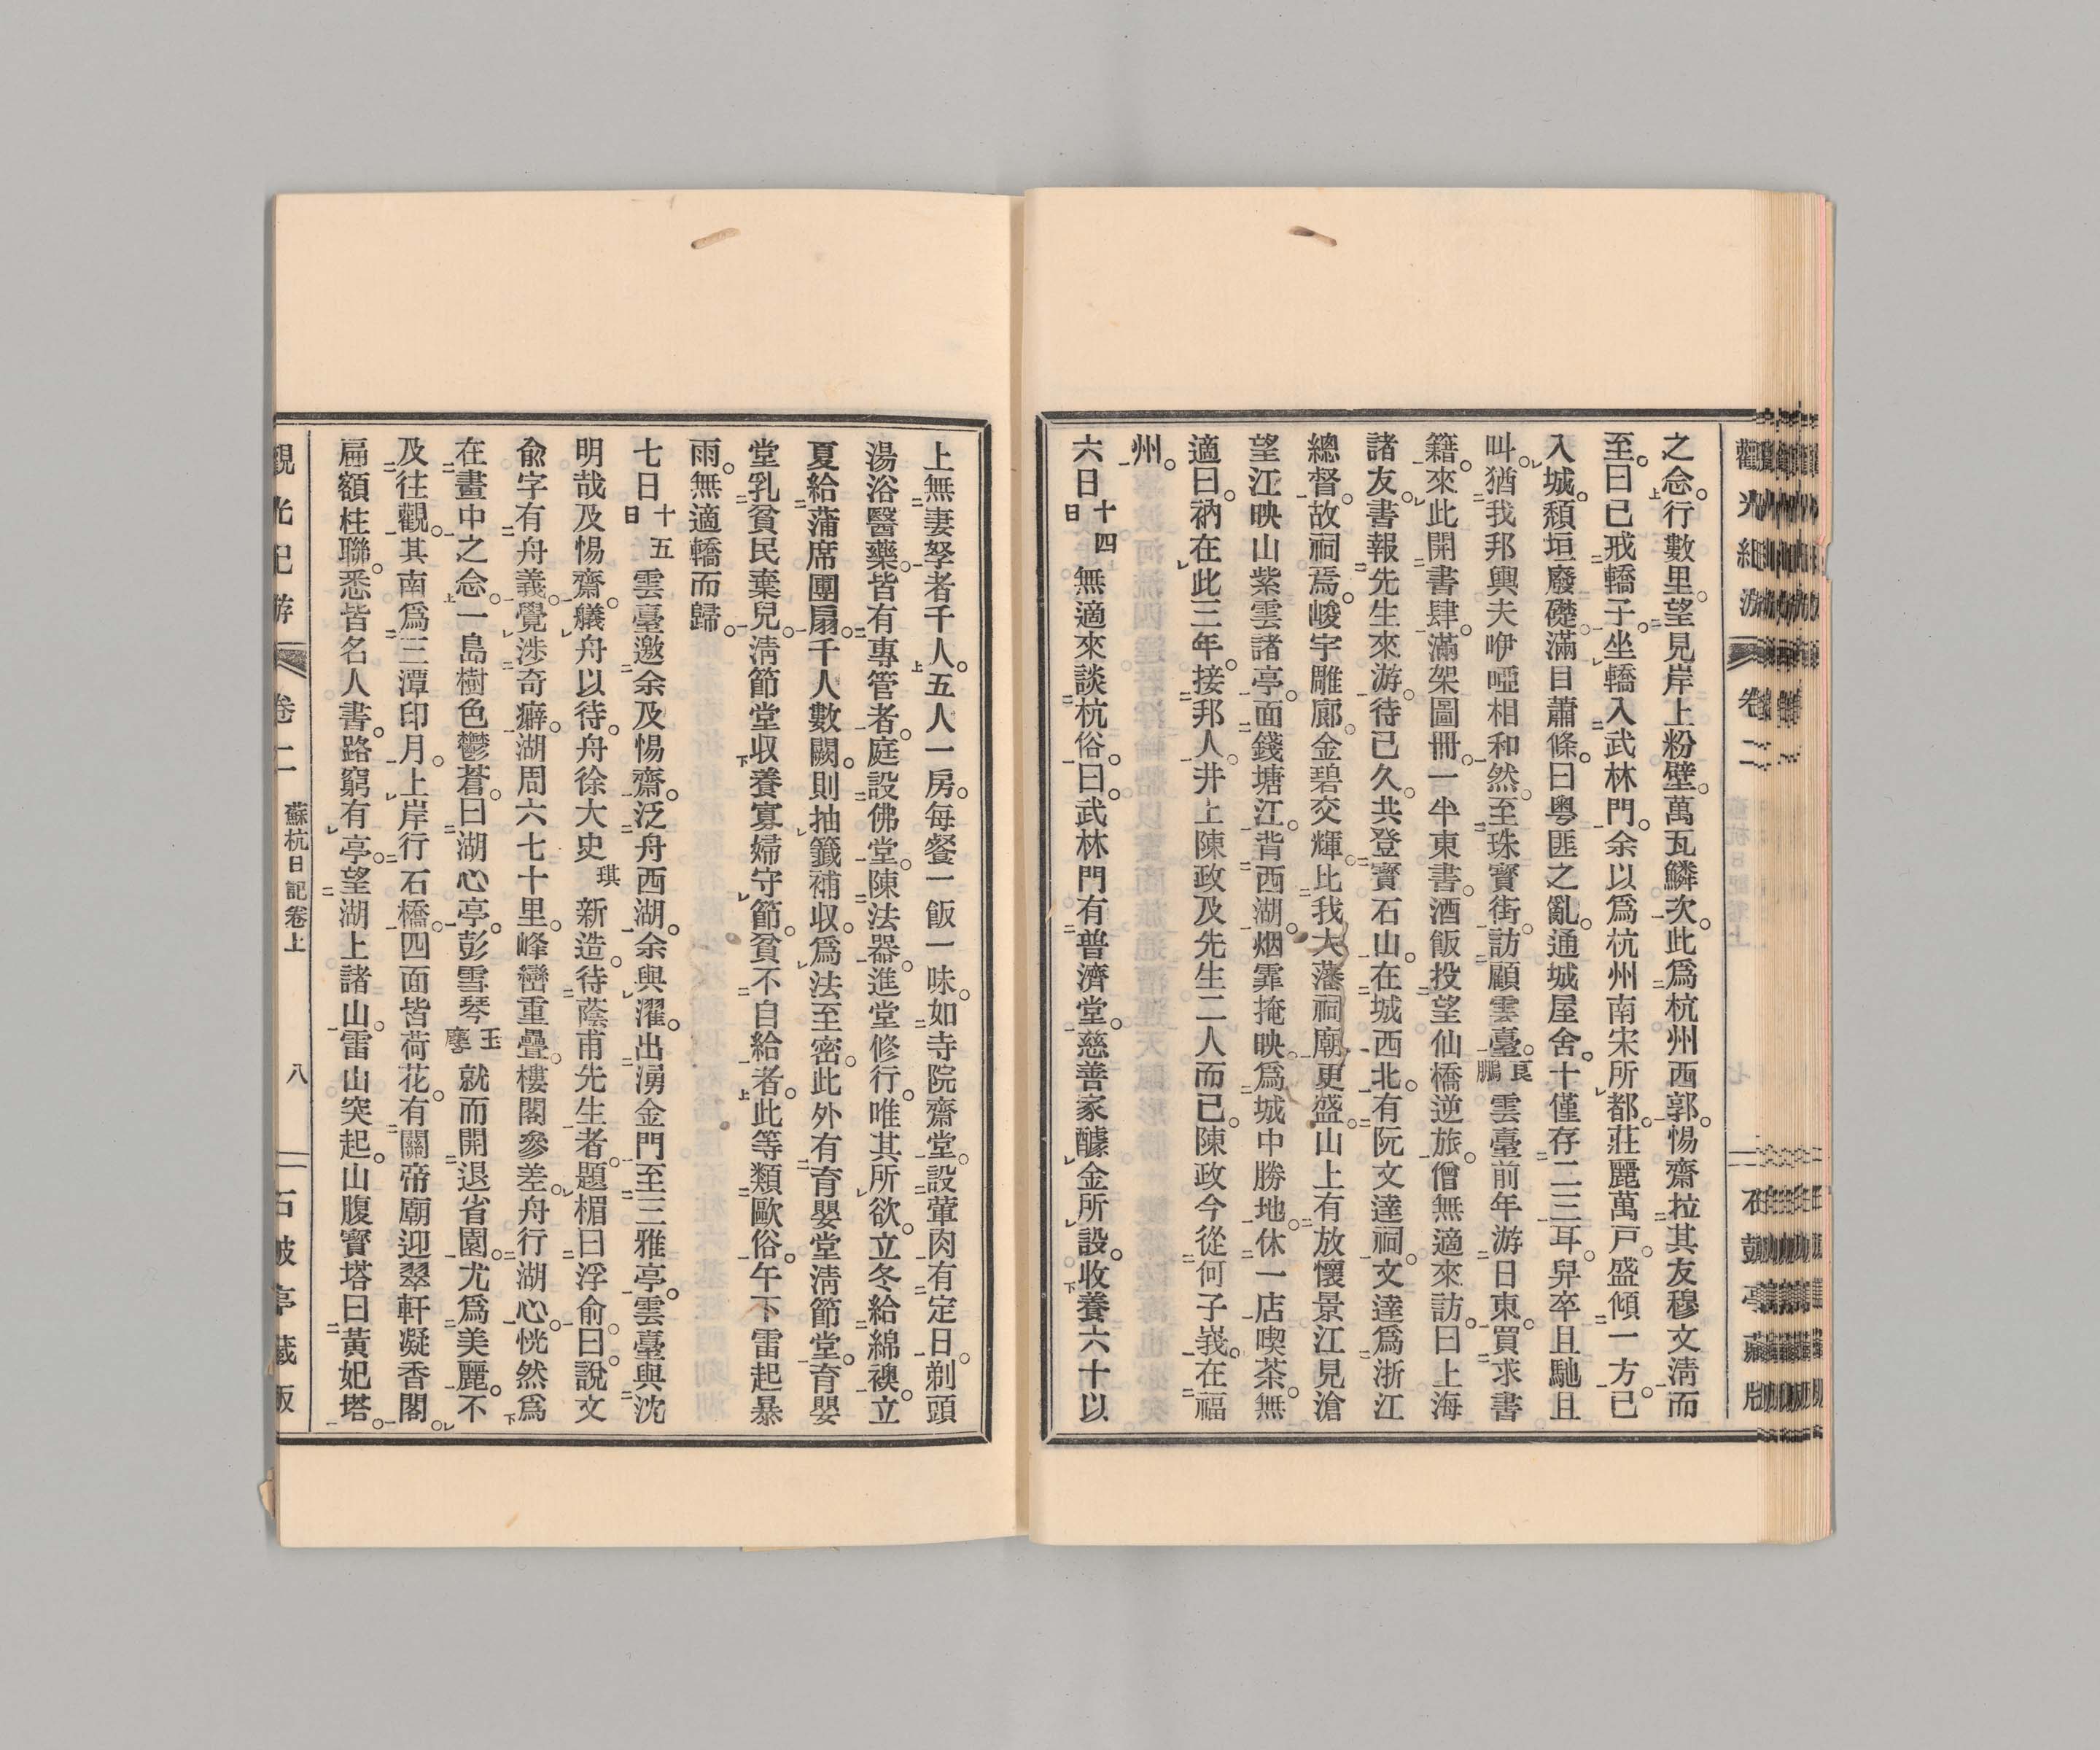 之念。行數里。望見岸上粉壁。萬瓦鱗次。此爲杭州西郭。惕齋拉其友穆文淸而
至。曰已戒轎子。坐轎入武林門。余以爲杭州南宋所都。莊麗萬戸。盛傾一方。已
入城。頽垣廢礎。滿目蕭條。曰粤匪之亂。通城屋舍。十僅存二三耳。舁卒且馳且
叫。猶我邦輿夫咿啞相和然。至珠寶街。訪顧雲臺。良鵬雲臺前年游日東。買求書
籍。來此開書肆。滿架圖冊。一半東書。酒飯投望仙橋逆旅。僧無適來訪。曰上海
諸友。書報先生來游。待已久。共登寶石山。在城西北。有阮文達祠。文達爲浙江
總督。故祠焉。峻宇雕廊。金碧交輝。比我大藩祠廟更盛。山上有放懷景江見滄
望江映山紫雲諸亭。面錢塘江。背西湖。烟霏掩映。爲城中勝地。休一店喫茶。無
適曰。衲在此三年。接邦人。井上陳政及先生二人而已。陳政今從何子峩。在福
州。
六日十四日無適來談杭俗。曰。武林門有普濟堂。慈善家醵金所設。收養六十以
上無妻孥者千人。五人一房。每餐一飯一味。如寺院齋堂。設葷肉有定日。剃頭
湯浴醫藥。皆有專管者。庭設佛堂。陳法器。進堂修行。唯其所欲。立冬給綿襖。立
夏給蒲席團扇。千人數闕。則抽籤補收。爲法至密。此外有育嬰堂淸節堂。育嬰
堂乳貧民棄兒。淸節堂収養寡婦守節。貧不自給者。此等類歐俗。午下雷起暴
雨。無適轎而歸。
七日十五日雲臺邀余及惕齋。泛舟西湖。余與濯。出湧金門至三雅亭。雲臺與沈
明哉及惕齋。艤舟以待。舟徐大史琪新造。待蔭甫先生者。題楣曰浮俞。曰。說文
兪字有舟義。覺涉奇癖。湖周六七十里。峰巒重疊。樓閣參差。舟行湖心。恍然爲
在畫中之念。一島樹色鬱蒼。曰湖心亭。彭雪琴玉麐就而開退省園。尤爲美麗。不
及往觀。其南爲三潭印月。上岸行石橋。四面皆荷花。有關帝廟迎翠軒凝香閣。
扁額柱聯。悉皆名人書。路窮有亭。望湖上諸山。雷山突起。山腹寶塔曰黃妃塔。
觀光紀游 卷二 蘇杭日記卷上 八 石鼓亭藏版